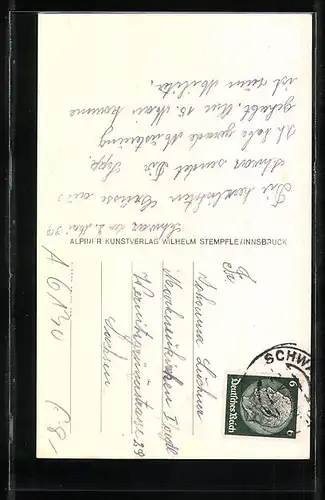 Schwaz den 2. Mai 39
Die herzlichsten Grüsse aus
Schwaz sendet Dir Sepp.
Ich habe gerade Musterung
gehabt. Am 15. Mai komme
ich zum Militär.
ALPINER KUNSTVERLAG WILHELM STEMPFLE/INNSBRUCK
Fr
Johanna
Markneukirchen
29
Sachsen
SCHW
6 6
Deutsches Reich
A 6130